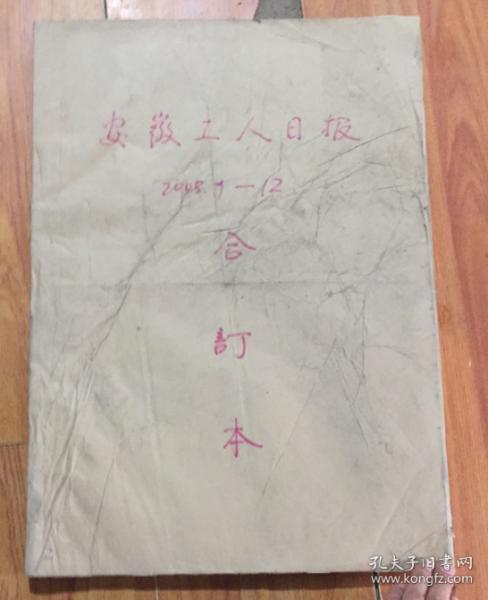 安徽工人日报
2008.9—12
合
訂
本
孔夫子旧书网
www.kongfz.com